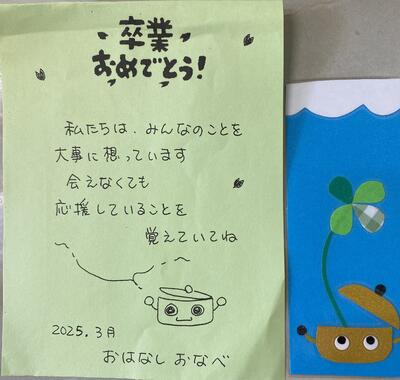 卒業
おめでとう!
私たちは、みんなのことを
大事に想っています
会えなくても
応援していることを
覚えていてね
2025.3月
おはなし おなべ